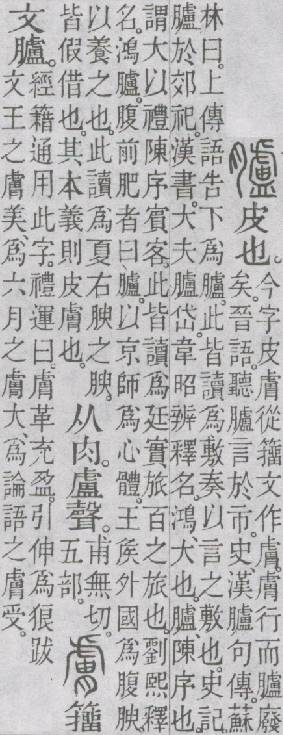 臚皮也。
今字皮膚從籒文作膚。膚行而臚廢
矣。晉語聽臚言於市。史漢臚句傳。蘇
林曰。上傳語告下爲臚。此皆讀爲敷奏以言之敷也。史記
臚於郊祀。漢書。大夫臚岱。韋昭辨釋名。鴻、大也。臚陳序也。
謂大以禮陳序賓客。此皆讀爲廷實旅百之旅也。劉熙釋
名。鴻臚。腹前肥者曰臚。以京師爲心體。王矦外國爲腹腴。
以養之也。此讀爲夏右腴之腴。
皆假借也。其本義則皮膚也。
从肉。盧聲。
甫無切。
五部。
膚籒
文臚。
經籍通用此字。禮運曰。膚革充盈。引伸爲狼跋
文王之膚美、爲六月之膚大、爲論語之膚受。